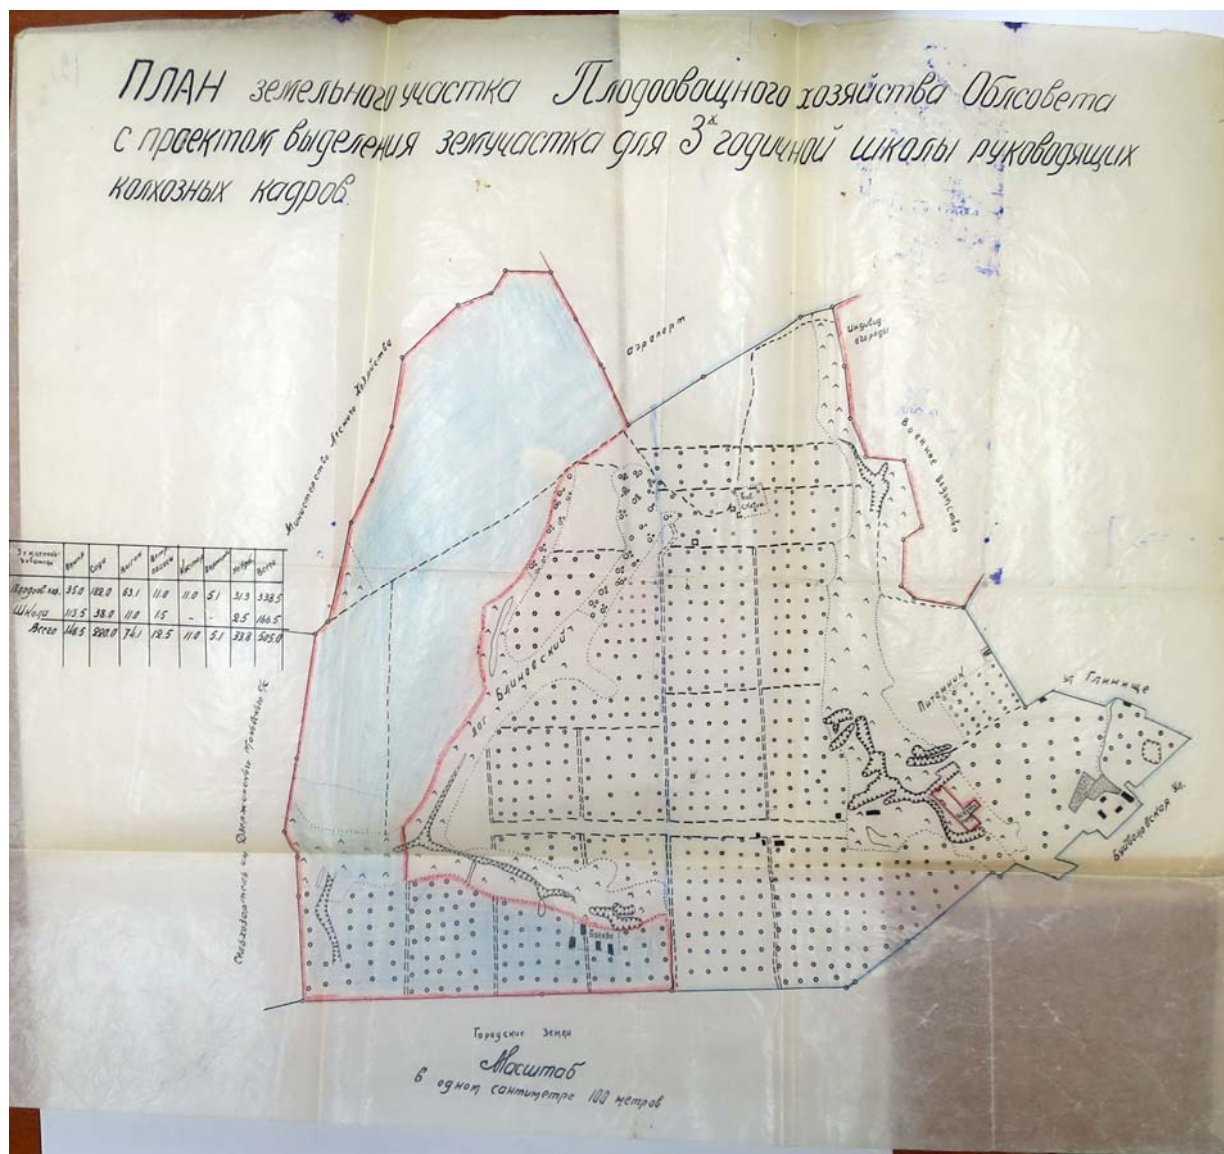 ПЛАН земельного участка Плодоовощного хозяйства Облсовета
с проектом выделения земучастка для 3х годичной школы руководящих
колхозных кадров.
Министерство Лесного Хозяйства
Аэропорт
Индивид.
огороды
Военное ведомство
Пашня Сады Выгон Всего
Плодоов. хоз. 35.0 182.0 63.1 11.0 11.0 5.1 31.3 338.5
Школа 113.5 38.0 11.0 1.5 - - 2.5 166.5
Всего 148.5 220.0 74.1 12.5 11.0 5.1 33.8 505.0
Лог Блиновский
Питомник
ул Глинище
Городские земли
Масштаб
в одном сантиметре 100 метров